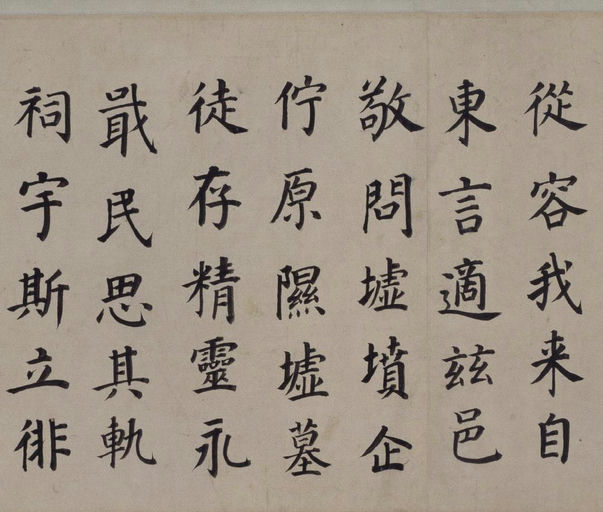 從容我来自
東言適茲邑
敬問墟墳企
佇原隰墟墓
徒存精靈永
戢民思其軌
祠宇斯立徘